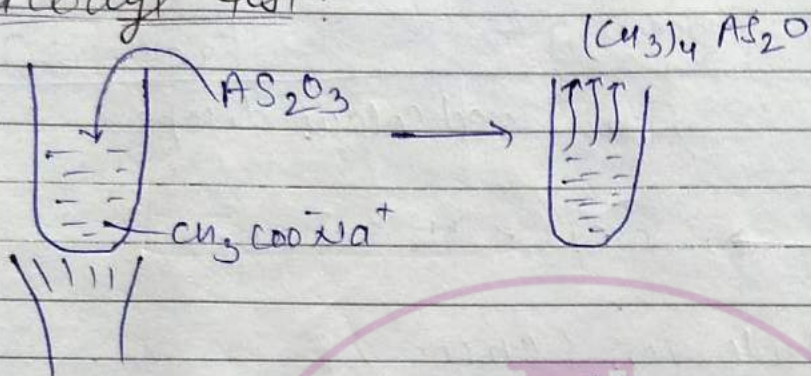 (CH3)4 AS2O
AS2O3
CH3COO⁻Na⁺